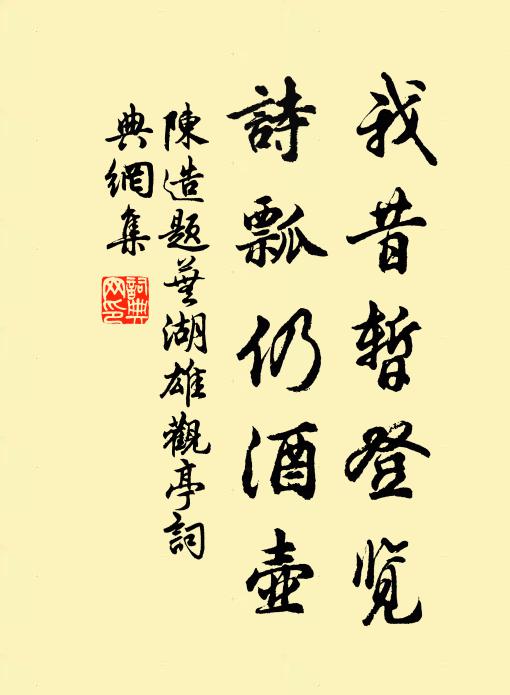 我昔暫登览
詩瓢仍酒壺
陳造题蕪湖雄觀亭詞
典網集
詞典网印